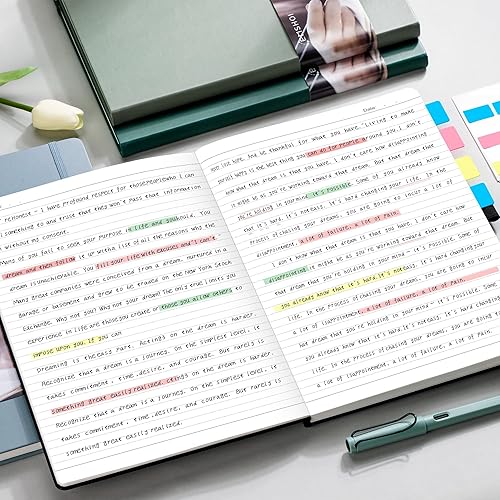 EMSHOI
remonest - I have profound respect for thosepeoplewho I can
something to and trust that they won't pass that information
without my consent.
Many of you fail to seek your purpose in life and you should. You
dream and then follow it up with a list of all the reasons why the
dream is unachievable. You fill your life with excuses and'I can't
Many great companies were conceived from a dream, nurtured in a
garage or basement and grew to be traded on the New York Stock
Exchange. Why not you? Why not your dream The only true limits you
experience in life are those you create or those you allow others to
impose upon you. If you can
Dreaming is the easy part. Acting on the dream is harder.
Recognize that a dream is a journey. On the simplest level, it
takes commitment, time, desire, and courage. But rarely is
something great easily realized. cting on the dream is harder.
Recognize that a dream is a journey. On the simplest level, it
takes commitment, time, desire, and courage. But rarely is
something great easily realized.
Date:
most last hope. And be thankful for what you have. Living to make
people happy is the best thing you can do for people around you. I don't
know what that dream is that you have, I don't care how disappointing
it might be as you're working toward that dream. But that dream that
you're holding in your mind it's possible. Some of you already know
that it's hard, it's not easy. It's hard changing your life. In the
process of chasing your dreams, you are going to incur a lot of
disappointment, a lot of failure, a lot of pain.
I don't know what that dream is that you have, I don't care how
disappointing it might be as you're working toward that dream. But
that dream that you're holding in your mind - it's possible. Some of
you already know that it's hard, it's not easy. It's hard changing your
life. In the process of chasing your dreams, you are going to incur
a lot of disappointment, a lot of failure, a lot of pain.
but that dream that you're holding in your mind - it's possible. Some of
you already know that it's hard, it's not easy. It's hard changing your
life. In the process of chasing your dreams, you are going to incur
a lot of disappointment, a lot of failure, a lot of pain